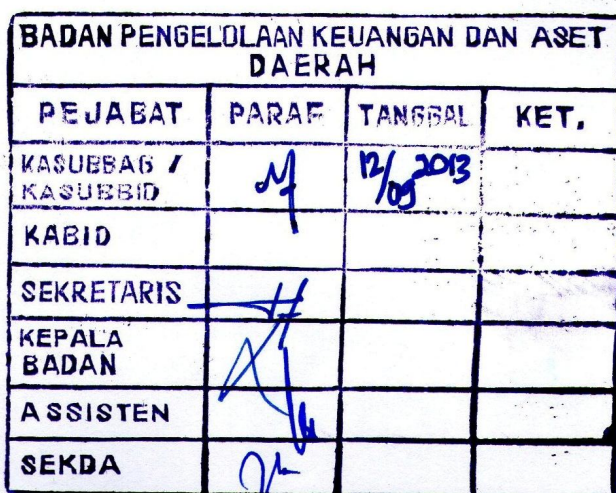 BADAN PENGELOLAAN KEUANGAN DAN ASET
DAERAH
PEJABAT PARAF TANGGAL KET.
KASUBBAG / 12/09 2013
KASUBBID
KABID
SEKRETARIS
KEPALA
BADAN
ASSISTEN
SEKDA